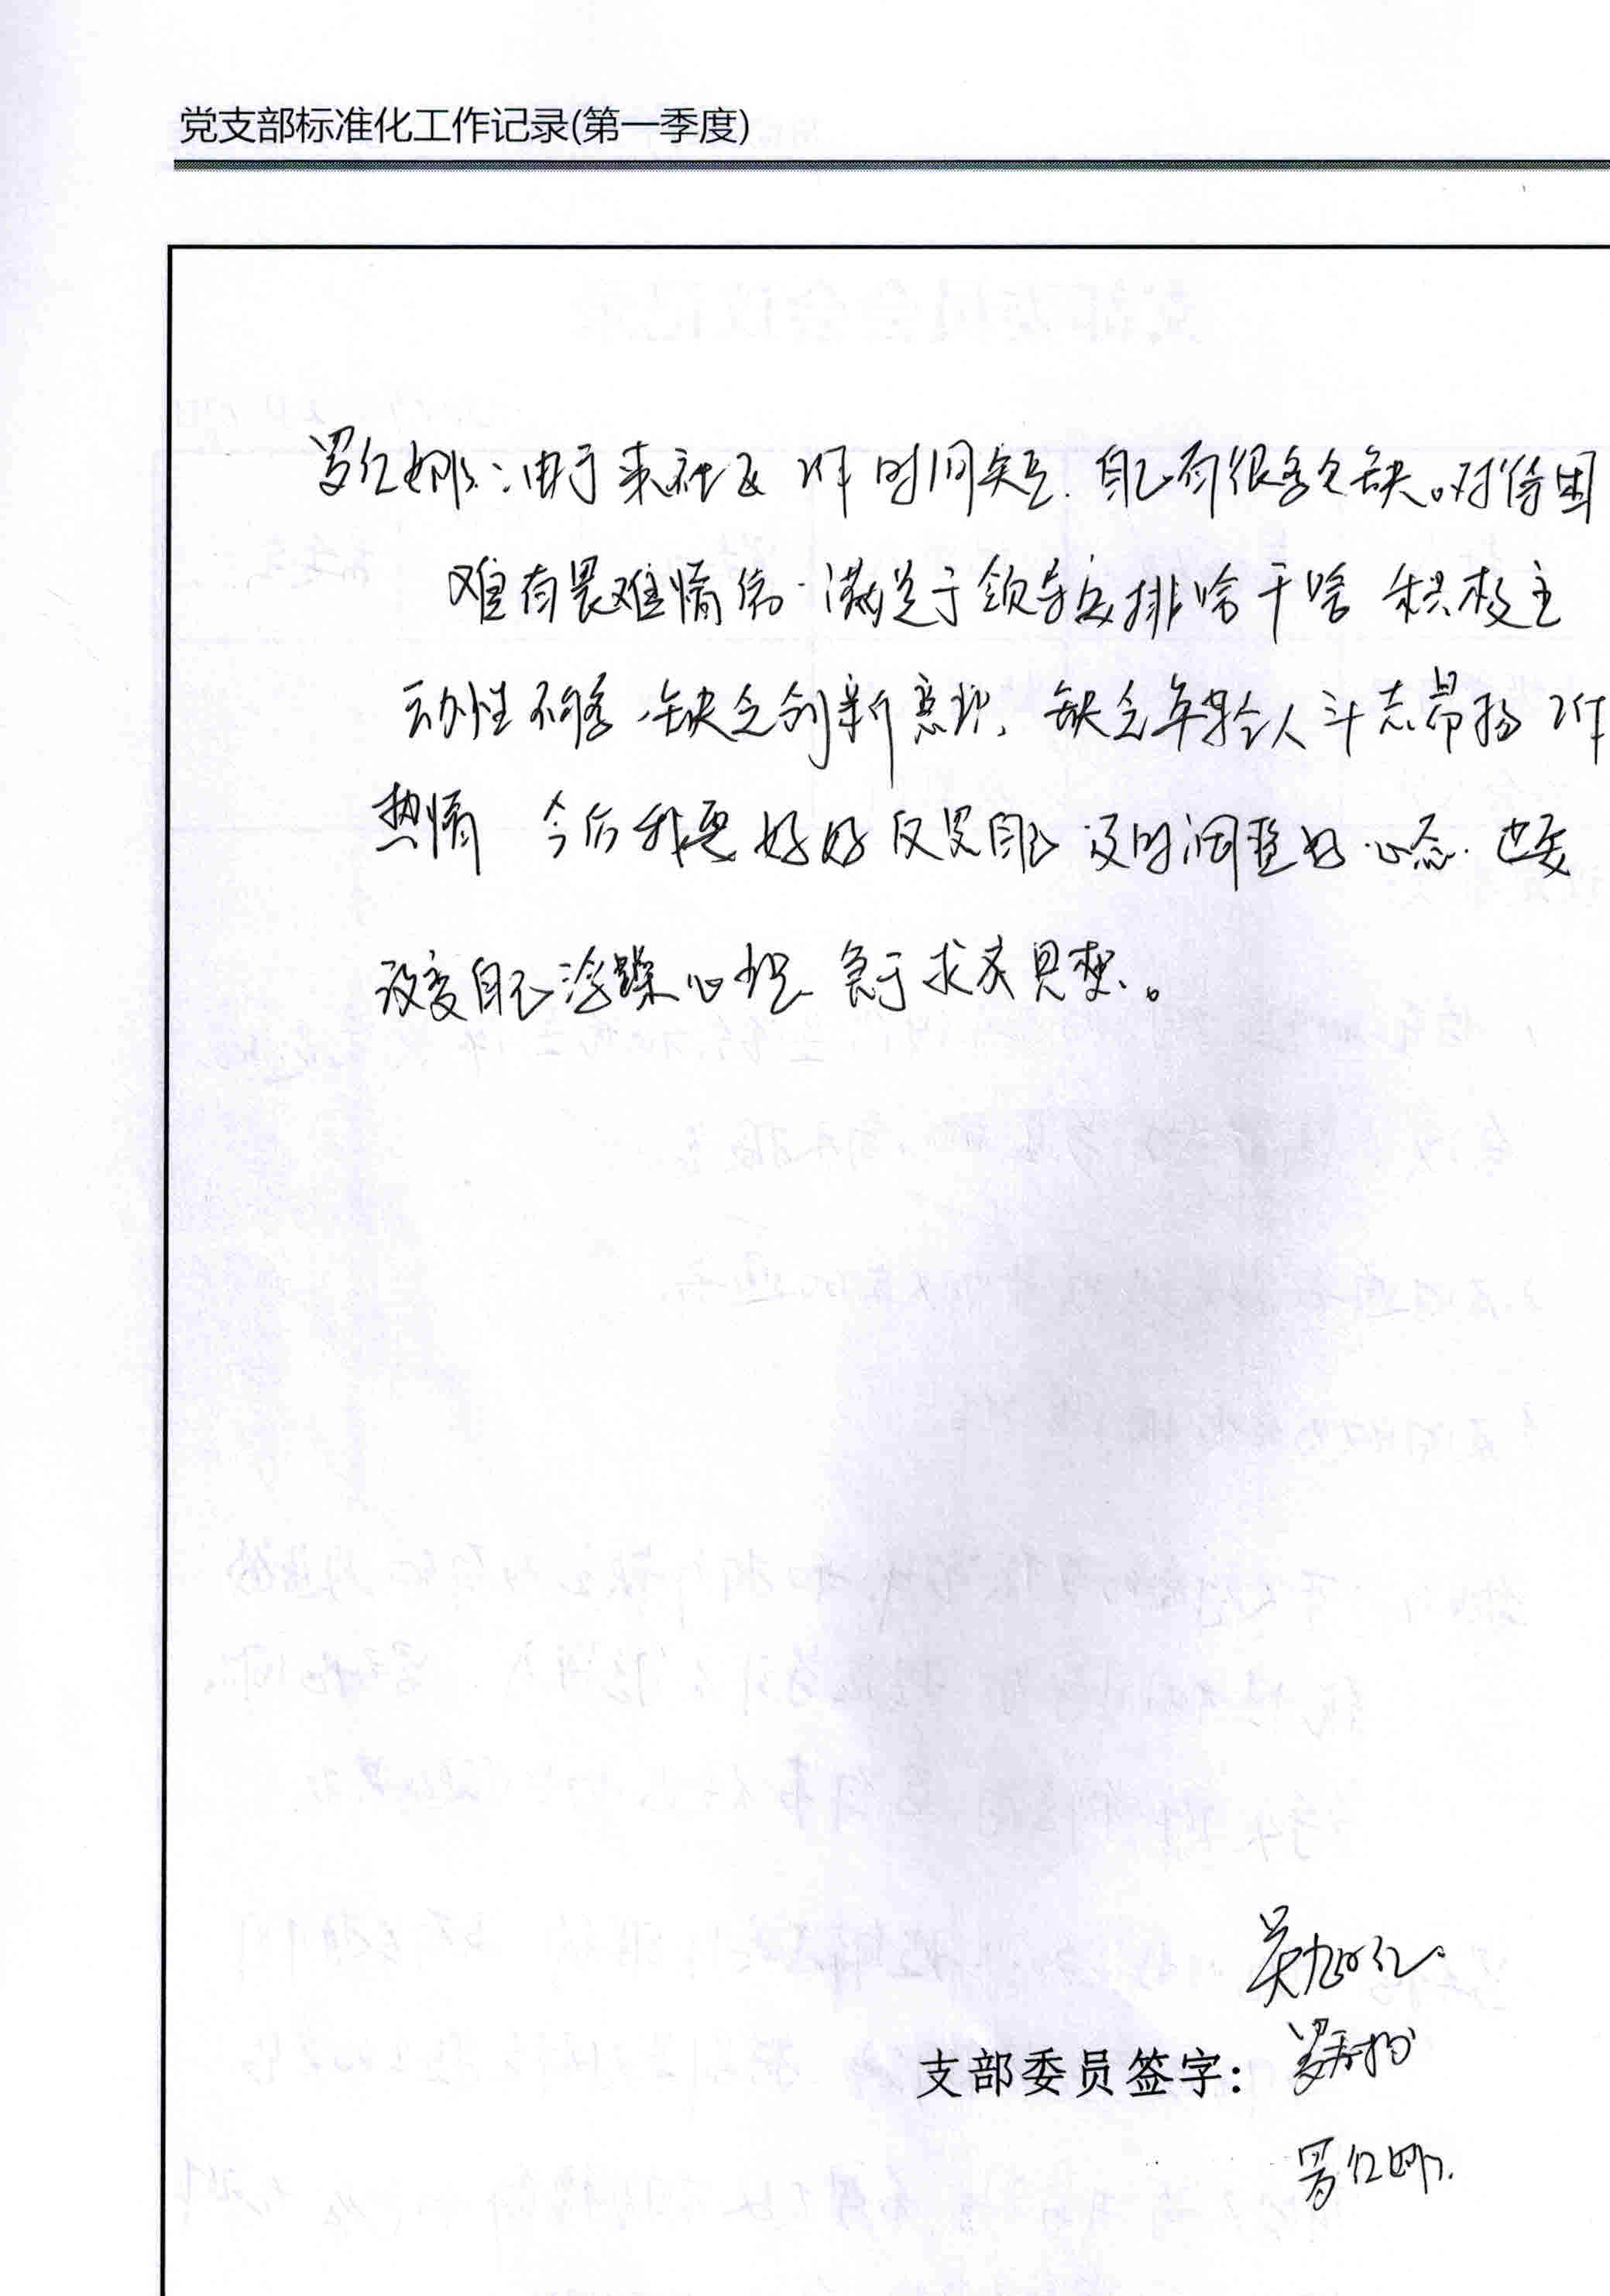 党支部标准化工作记录(第一季度)
罗红娜:由于来社区工作时间短,自己有很多欠缺。对待困
难有畏难情绪.满足于领导安排啥干啥 积极主
动性不够,缺乏创新意识,缺乏年轻人斗志昂扬工作
热情 今后我要好好反思自己 及时调整好心态.也要
改变自己浮躁心理、急于求成思想。
支部委员签字:
罗红娜.